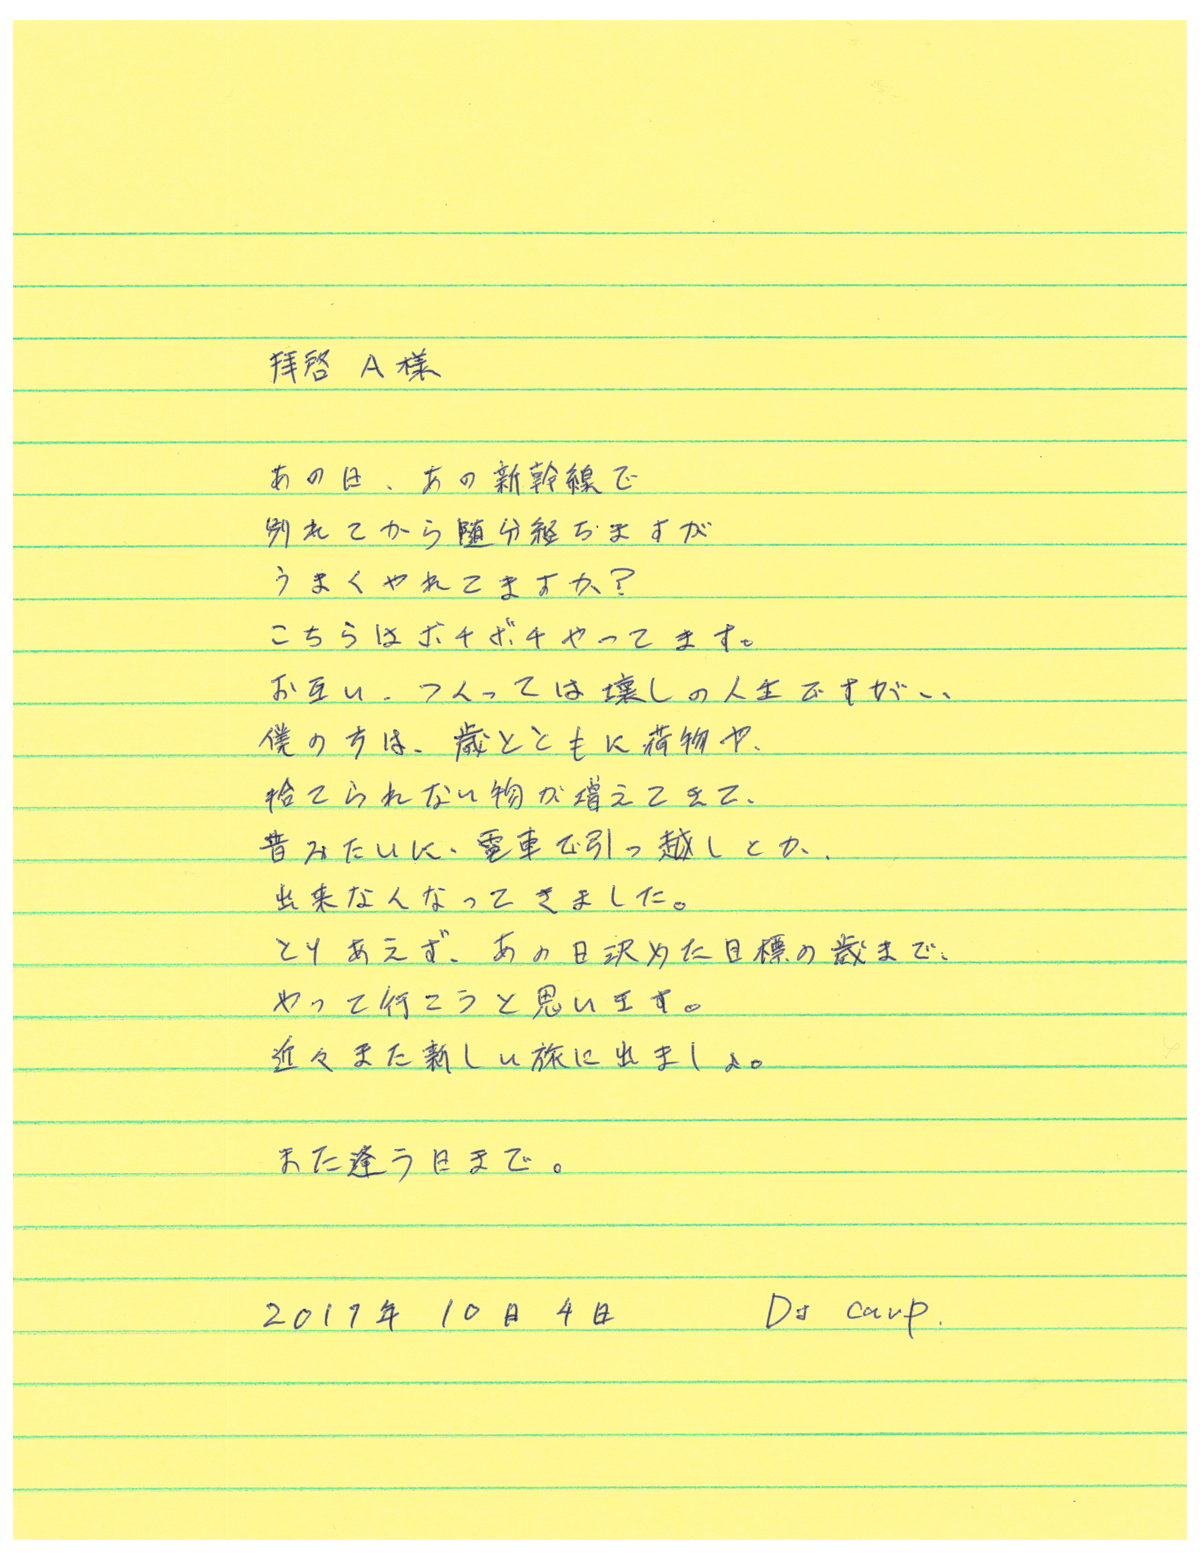 拝啓 A様
あの日、あの新幹線で
別れてから随分経ちますが
うまくやれてますか?
こちらはボチボチやってます。
お互い、つくっては壊しの人生ですが、、
僕の方は、歳とともに荷物や、
捨てられない物が増えてきて、
昔みたいに、電車で引っ越しとか、
出来なくなってきました。
とりあえず、あの日決めた目標の歳まで、
やって行こうと思います。
近々また新しい旅に出ましょ。
また逢う日まで。
2017年 10月 4日 DJ carp.